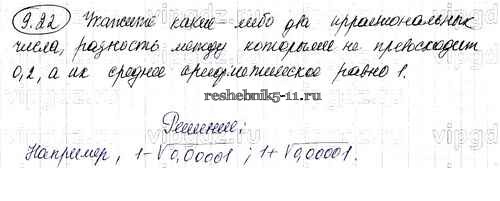 9.22 Укажите какие-либо два иррациональных
числа, разность между которыми не превосходит
0,2, а их среднее арифметическое равно 1.
reshebnik5-11.ru
Решение:
Например, 1-√0,00001 ; 1+√0,00001.